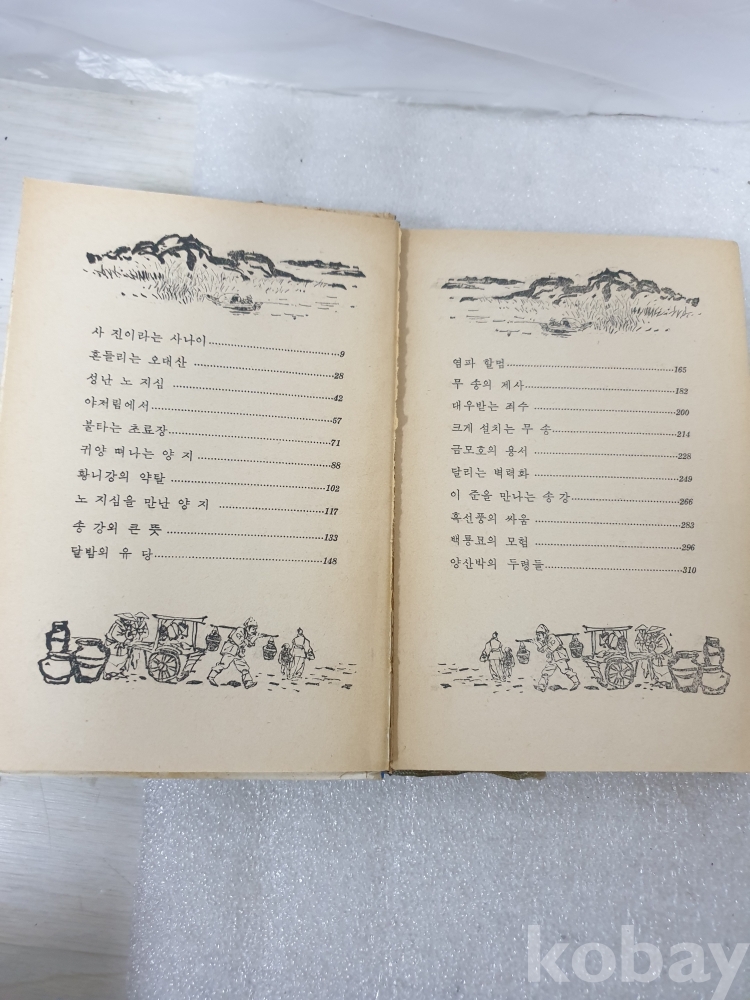 사 진이라는 사나이 9
흔들리는 오대산 28
성난 노 지심 42
야저림에서 57
불타는 초료장 71
귀양 떠나는 양 지 88
황니강의 약탈 102
노 지심을 만난 양 지 117
송 강의 큰 뜻 133
달밤의 유 당 148
염파 할멈 165
무 송의 제사 182
대우받는 죄수 200
크게 설치는 무 송 214
금모호의 용서 228
달리는 벽력화 249
이 준을 만나는 송 강 266
흑선풍의 싸움 283
백룡묘의 모험 296
양산박의 두령들 310
kobay